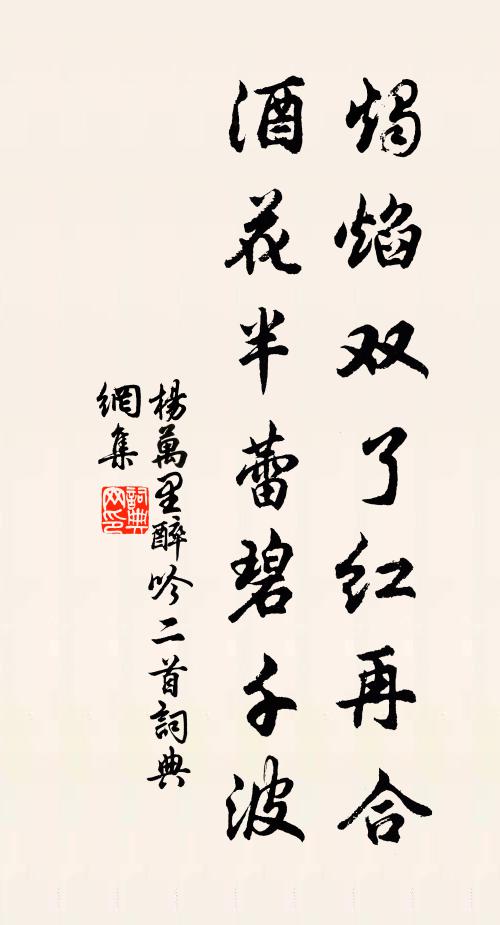 烛焰双了红再合
酒花半蕾碧千波
楊萬里醉吟二首詞典
網集
詞典
网印